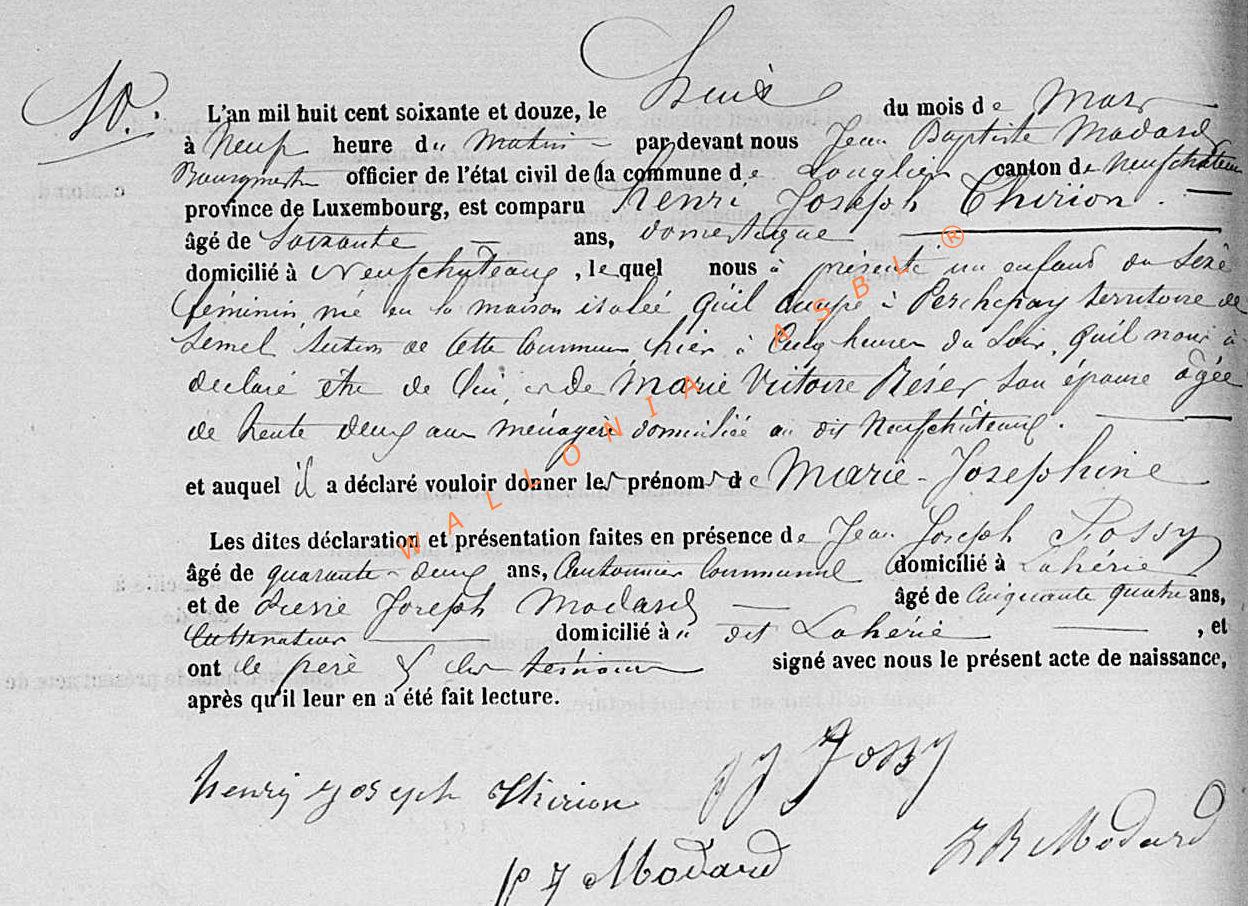 10.
L'an mil huit cent soixante et douze, le huit du mois de Mars
à Neuf heure du Matin par devant nous Jean Baptiste Modard
Bourgmestre officier de l'état civil de la commune de Longlier canton de Neufchâteau
province de Luxembourg, est comparu Henri Joseph Thirion.
âgé de Soixante ans, domestique
domicilié à Neufchâteau, lequel nous a présenté un enfant du sexe
féminin, né en la maison isolée qu'il occupe à territoire de
Semel Section de Cette Commune, hier à Cinq heures du Soir, qu'il nous a
declaré être de lui et de Marie Victoire son épouse âgée
de trente deux ans ménagère domiciliée au dit Neufchâteau.
et auquel il a déclaré vouloir donner les prénoms de Marie-Josephine
Les dites déclaration et présentation faites en présence de Jean Joseph Fossy
âgé de quarante-deux ans, Cantonnier Communal domicilié à Lahérie
et de Pierre Joseph Modard âgé de Cinquante quatre ans,
Cultivateur domicilié à " dit Lahérie, et
ont le père & les témoins signé avec nous le présent acte de naissance,
après qu'il leur en a été fait lecture.
Henri Joseph Thirion JJ Fossy
P J Modard J B Modard
WALLONIA ASBL ®